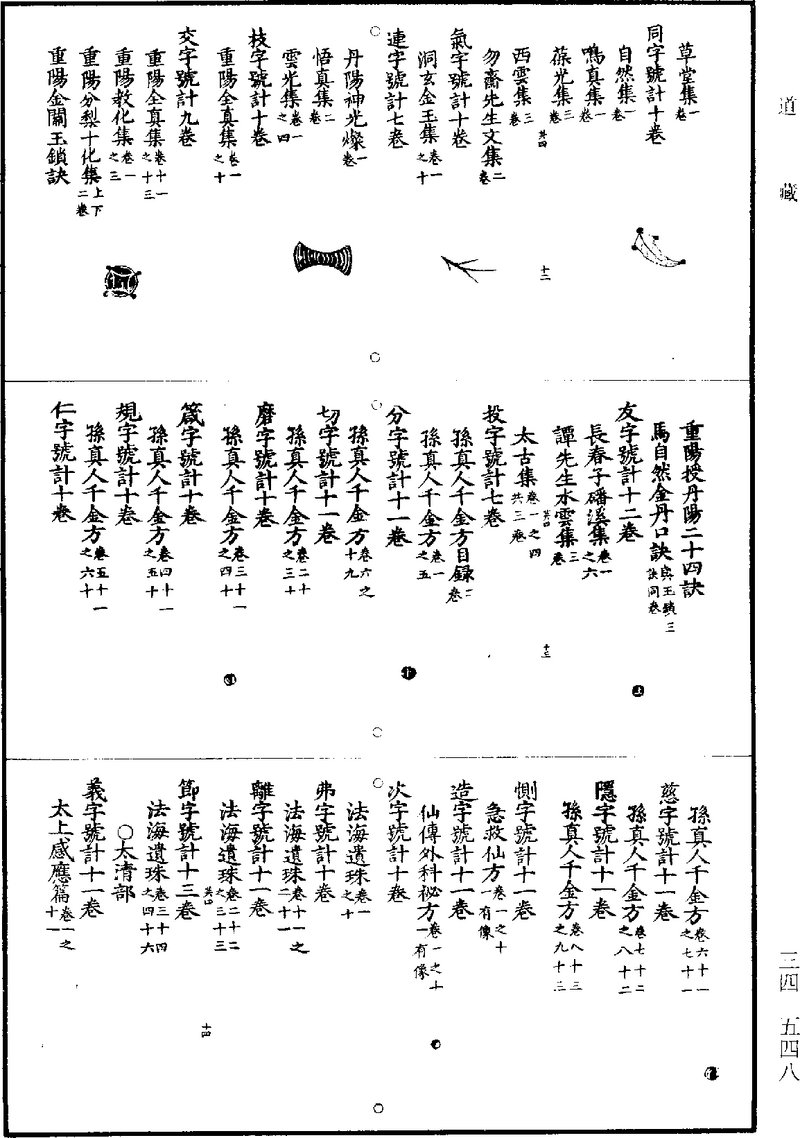 道藏
草堂集一卷
同字號計十卷
自然集一卷
鳴真集一卷
葆光集三卷
其四
西雲集三卷
勿齋先生文集二卷
氣字號計十卷
洞玄金玉集卷一之十
連字號計七卷
丹陽神光燦一卷
悟真集二卷
雲光集卷一之四
枝字號計十卷
重陽全真集卷一之十
交字號計九卷
重陽全真集卷十一之十三
重陽教化集卷一之三
重陽分梨十化集上下二卷
重陽金關玉鎖訣
十二
重陽授丹陽二十四訣
馬自然金丹口訣與玉鎖三訣同卷
友字號計十二卷
長春子磻溪集卷一之六
譚先生水雲集三卷
其四
太古集卷一之四共三卷
投字號計七卷
孫真人千金方目録二卷
孫真人千金方卷一之五
分字號計十一卷
孫真人千金方卷六之十九
切字號計十一卷
孫真人千金方卷二十之三十
磨字號計十卷
孫真人千金方卷三十一之四十
箴字號計十卷
孫真人千金方卷四十一之五十
規字號計十卷
孫真人千金方卷五十一之六十
仁字號計十卷
十三
孫真人千金方卷六十一之七十一
慈字號計十一卷
孫真人千金方卷七十二之八十二
隱字號計十一卷
孫真人千金方卷八十三之九十三
惻字號計十一卷
急救仙方卷一之十一有像
造字號計十一卷
仙傳外科祕方卷一之十一有像
次字號計十卷
法海遺珠卷一之十
弗字號計十卷
法海遺珠卷十一之二十一
離字號計十一卷
法海遺珠卷二十二之三十三
其四
節字號計十三卷
法海遺珠卷三十四之四十六
○太清部
義字號計十一卷
太上感應篇卷一之十一
十四
三四 五四八